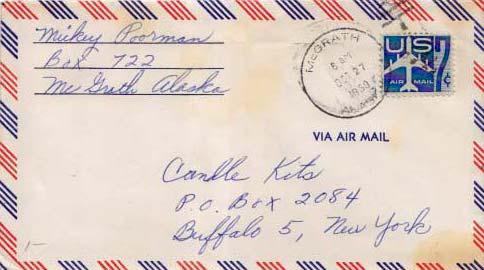 Mickey Poorman
Box 722
McGrath Alaska
McGRATH
OCT 27
US
AIR MAIL
VIA AIR MAIL
Candle Kits
P.O. Box 2084
Buffalo 5, New York
1-